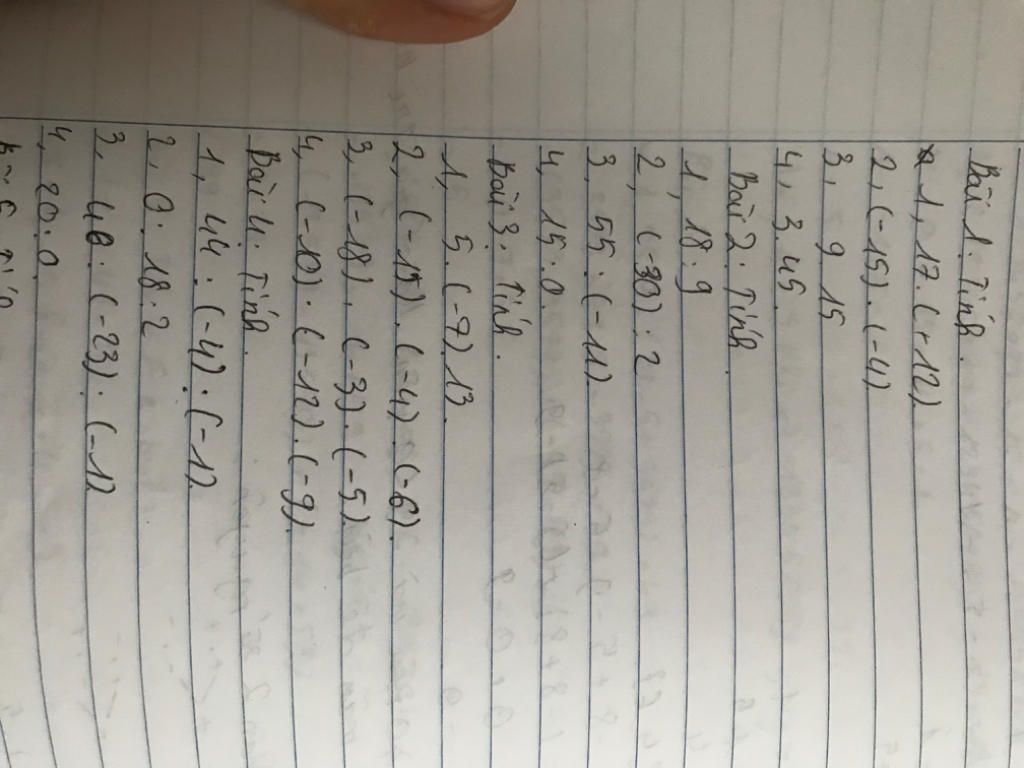 Bài 1: Tính.
1, 17.(-12).
2, (-15).(-4)
3, 9 . 15
4, 3.45.
Bài 2: Tính.
1, 18:9
2, (-30):2
3, 55:(-11).
4, 15:0.
Bài 3: Tính.
1, 5.(-7).13.
2, (-15).(-4).(-6).
3, (-18).(-3).(-5).
4, (-10).(-12).(-9).
Bài 4: Tính.
1, 44:(-4).(-12
2, 0:18:2
3, 40:(-23).(-12
4, 20:0.